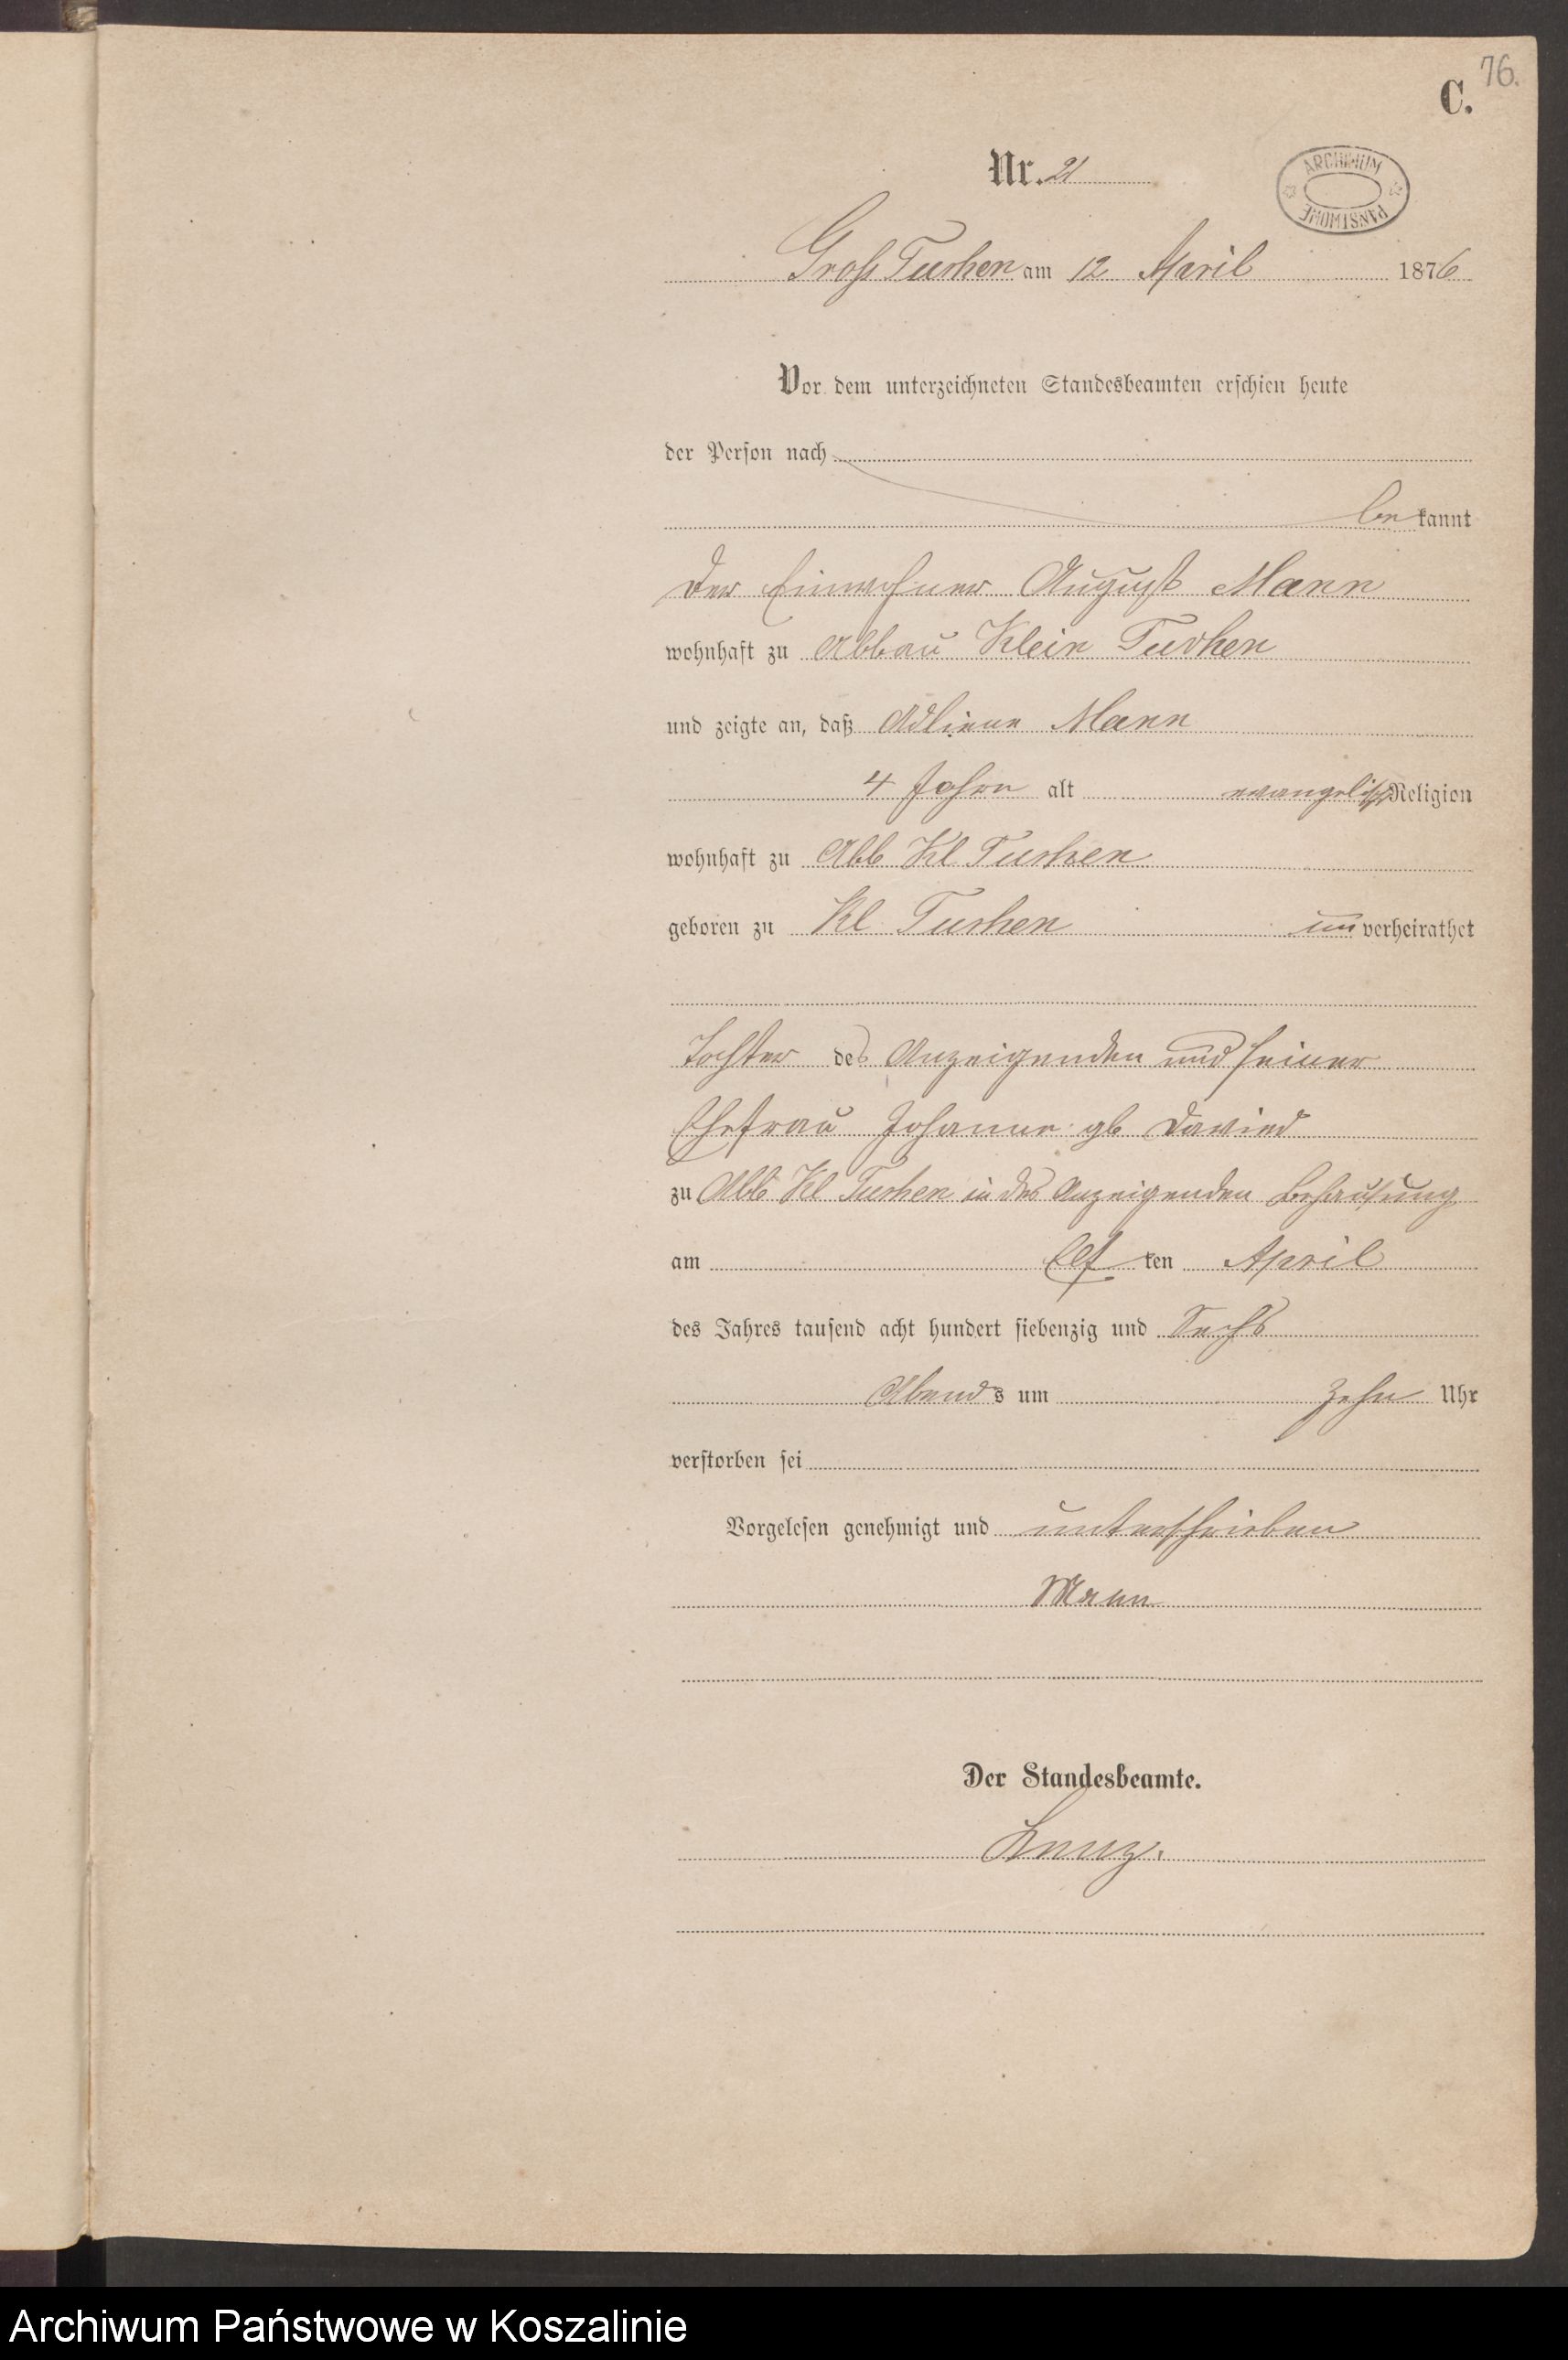 76.
C.
Nr. 21
ARCHIWUM PAŃSTWOWE
Groß Tuchen am 12 April 1876
Vor dem unterzeichneten Standesbeamten erschien heute
der Person nach
be kannt
der Einwohner August Mann
wohnhaft zu Abbau Klein Tuchen
und zeigte an, daß Adline Mann
4 Jahre alt evangelisch Religion
wohnhaft zu Abb Kl Tuchen
geboren zu Kl Tuchen un verheirathet
Tochter des Anzeigenden und seiner
Ehefrau Johanne gb David
zu Abb Kl Tuchen in des Anzeigenden Behausung
am Elf ten April
des Jahres tausend acht hundert siebenzig und Sechs
Abends um Zehn Uhr
verstorben sei
Vorgelesen genehmigt und unterschrieben
Mann
Der Standesbeamte.
Archiwum Państwowe w Koszalinie